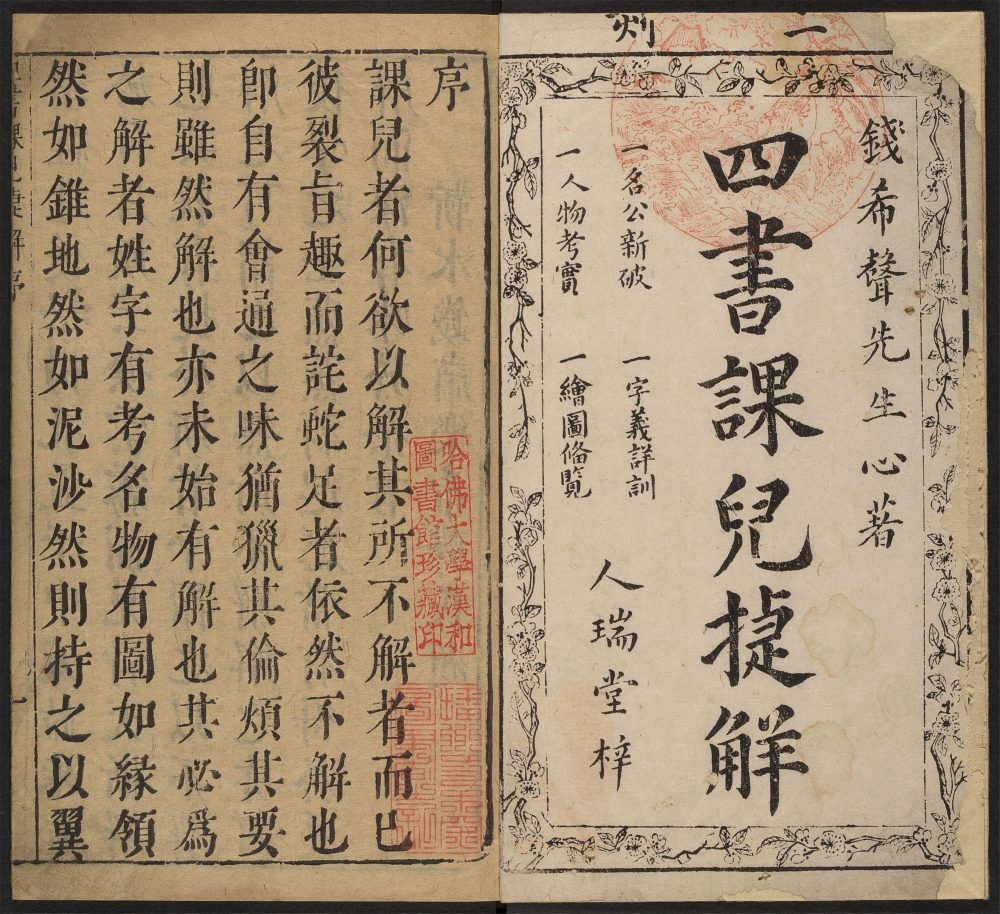 二刻
錢希聲先生心著
四書課兒捷解
一名公新破
一字義詳訓
一人物考實
一繪圖俻覽
人瑞堂梓
序
課兒者何欲以解其所不解者而已
彼裂旨趣而詫蛇足者依然不解也
卽自有會通之味猶獵其倫煩其要
則雖然解也亦未始有解也其必爲
之解者姓字有考名物有圖如緑領
然如錐地然如泥沙然則持之以翼
哈佛大學漢和
圖書館珍藏印
課兒捷解序
一